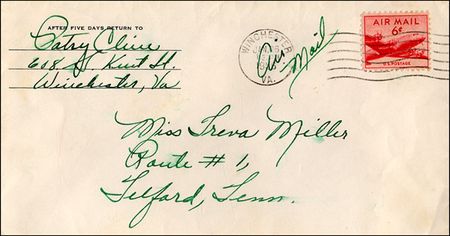 AFTER FIVE DAYS RETURN TO
Patsy Cline
608 S. Kent St.
Winchester, Va
WINCHESTER
VA.
Air Mail
AIR MAIL
6¢
U.S. POSTAGE
Miss Treva Miller
Route #1,
Telford, Tenn.